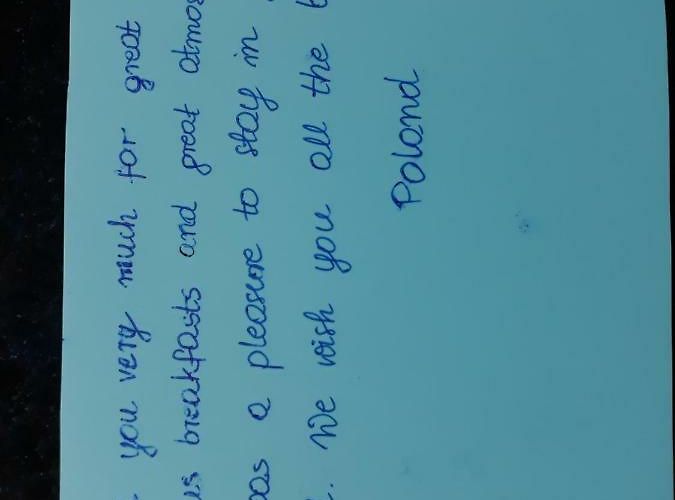 you very much for great
breakfasts and great
a pleasure to stay in
We wish you all the
Poland